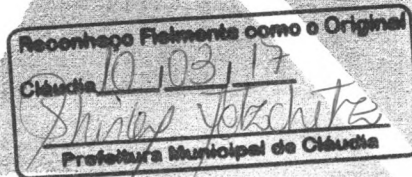 Reconheço Fielmente como o Original
Cláudia 10, 03, 17
Shirley
Prefeitura Municipal de Cláudia